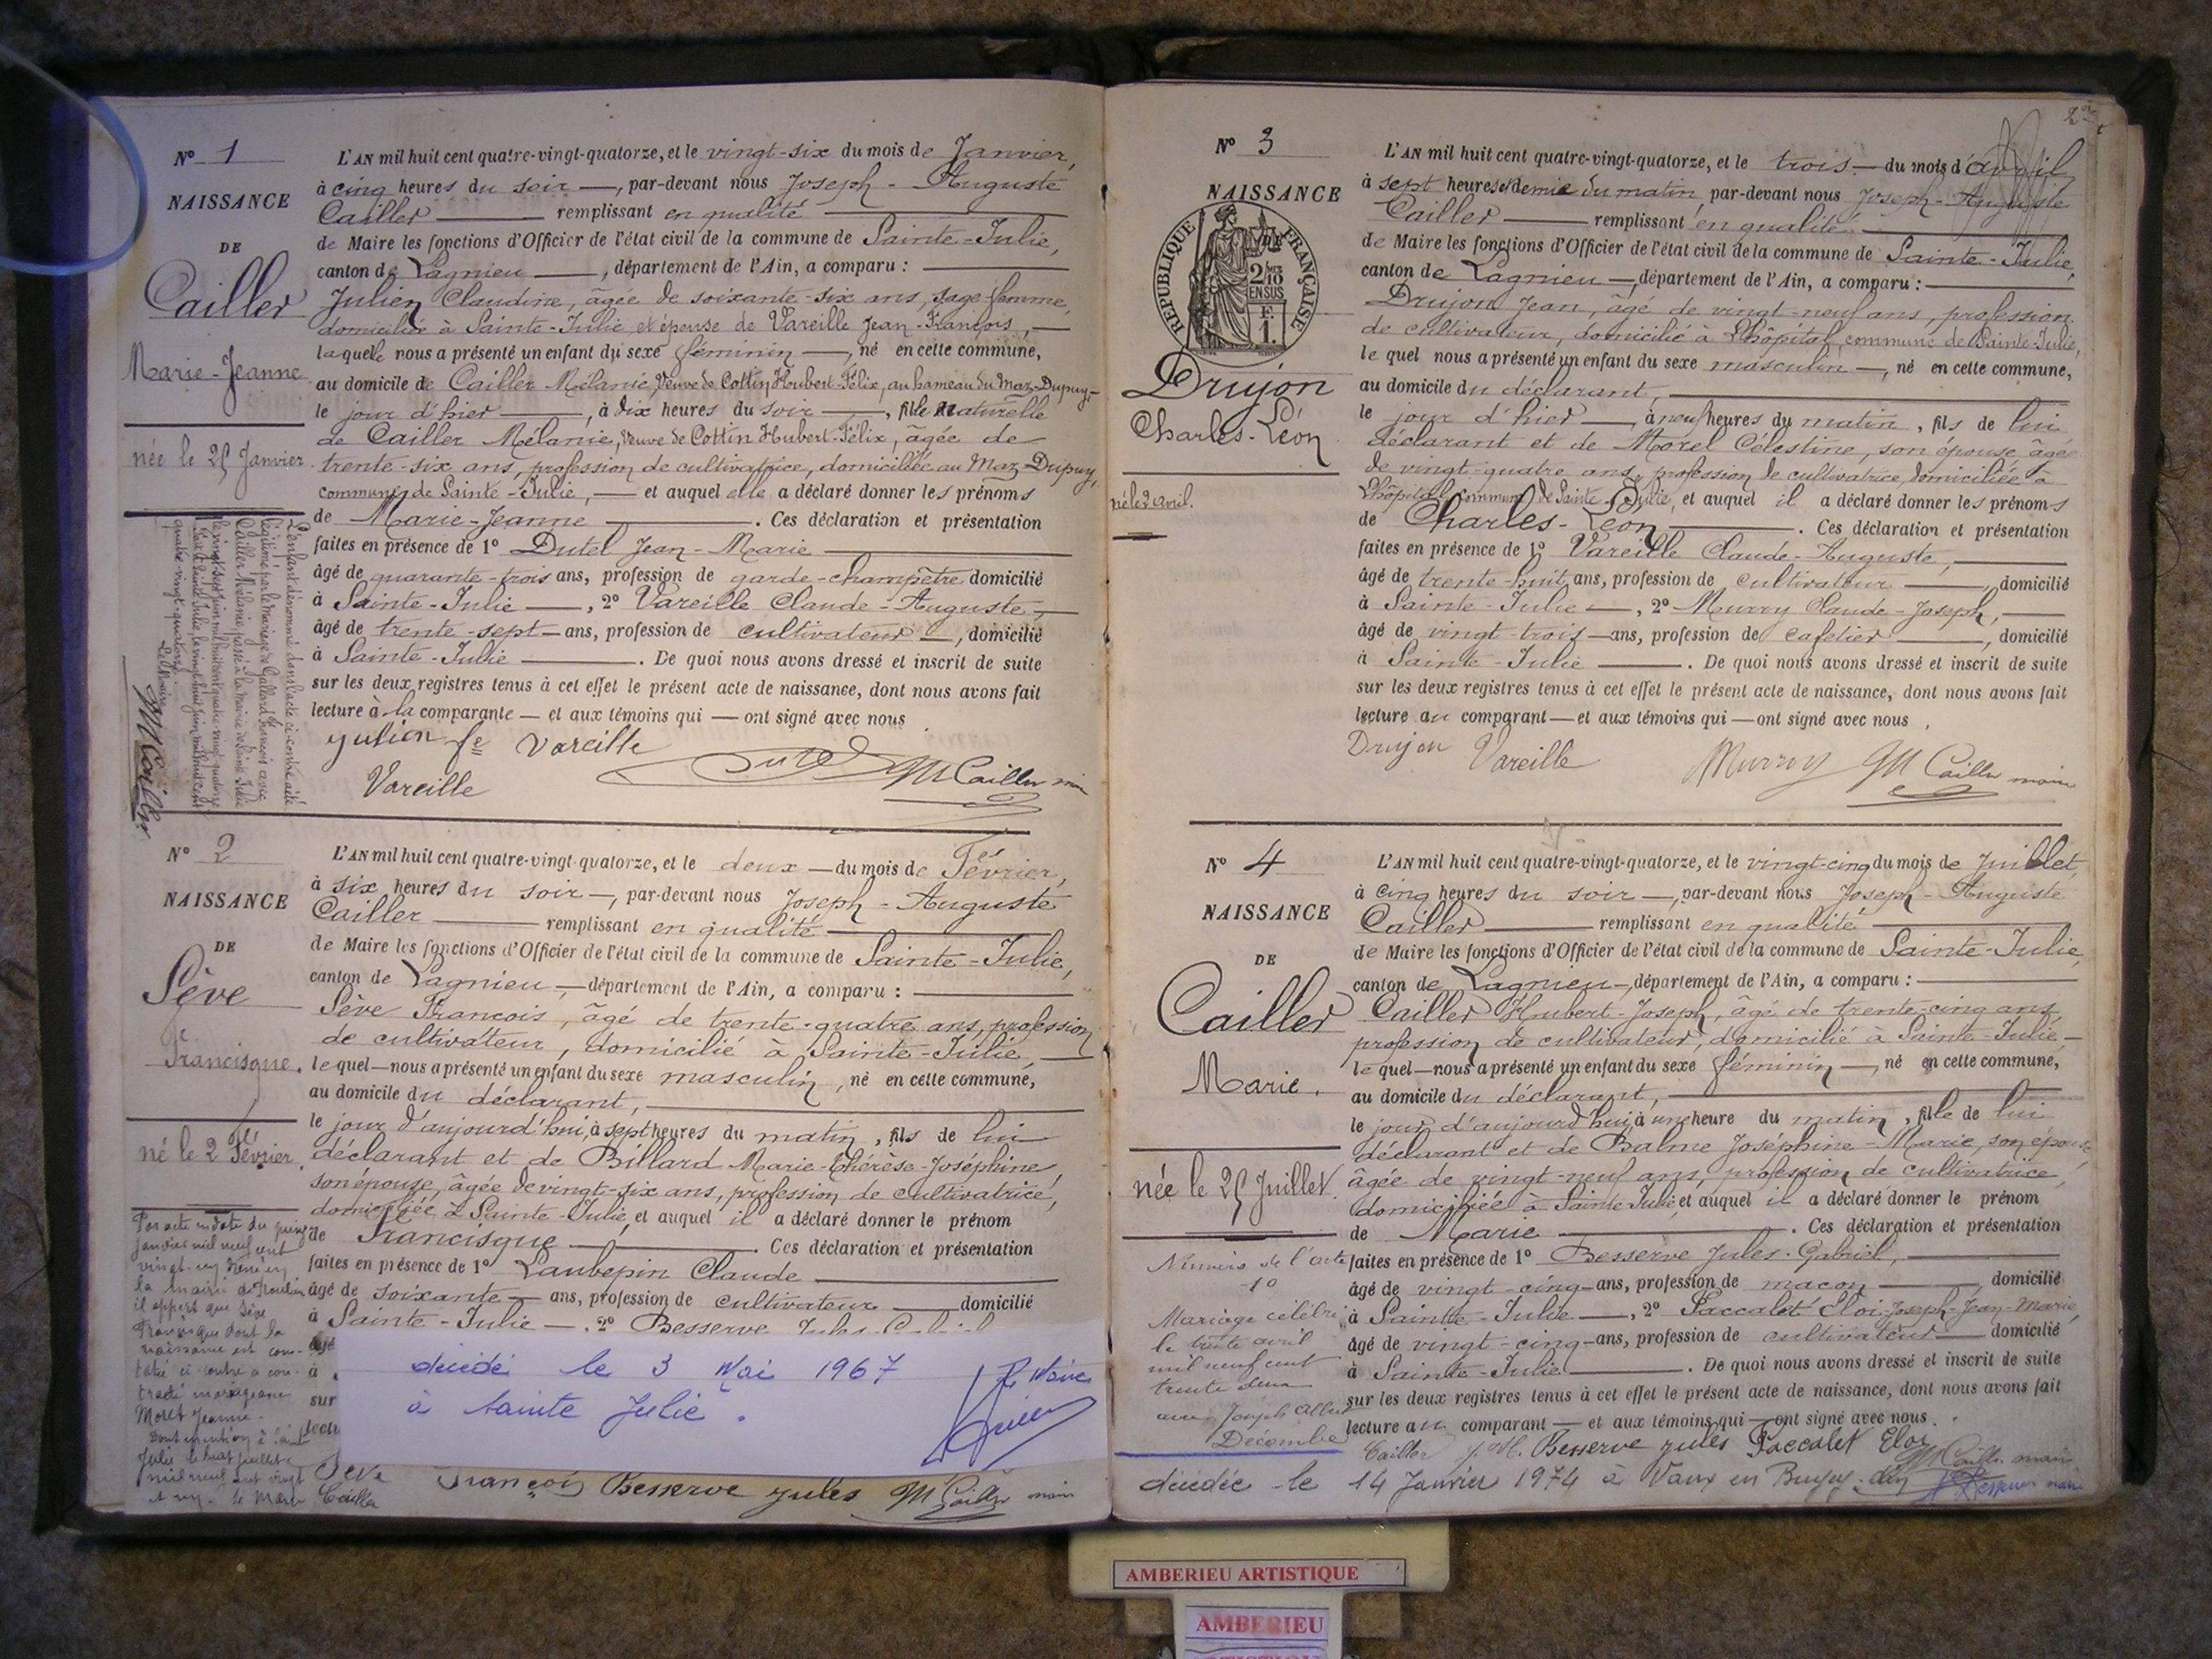 N° 1
NAISSANCE
DE
Cailler
Marie-Jeanne
née le 25 Janvier
L'AN mil huit cent quatre-vingt-quatorze, et le vingt-six du mois de Janvier,
à cinq heures du soir —, par-devant nous Joseph - Auguste
Cailler — remplissant en qualité —
de Maire les fonctions d'Officier de l'état civil de la commune de Sainte-Julie,
canton de Lagnieu —, département de l'Ain, a comparu : —
Julien Claudine, âgée de soixante-six ans, sage-femme,
domiciliée à Sainte-Julie, et épouse de Vareille Jean-François, —
laquelle nous a présenté un enfant du sexe féminin —, né en cette commune,
au domicile de Cailler Mélanie, Veuve de Cottin Hubert-Félix, au hameau du Maz-Dupuy,
le jour d'hier —, à dix heures du soir —, fille naturelle
de Cailler Mélanie, Veuve de Cottin Hubert-Félix, âgée de
trente-six ans, profession de cultivatrice, domiciliée au Maz-Dupuy,
commune de Sainte-Julie, — et auquel elle a déclaré donner les prénoms
de Marie-Jeanne —. Ces déclaration et présentation
faites en présence de 1° Dutel Jean-Marie —
âgé de quarante-trois ans, profession de garde-champêtre domicilié
à Sainte-Julie —, 2° Vareille Claude-Auguste, —
âgé de trente-sept — ans, profession de cultivateur —, domicilié
à Sainte-Julie —. De quoi nous avons dressé et inscrit de suite
sur les deux registres tenus à cet effet le présent acte de naissance, dont nous avons fait
lecture à la comparante — et aux témoins qui — ont signé avec nous
Julien fe Vareille
Vareille
Dutel
M Cailler
L'enfant dénommé dans l'acte ci-contre a été
légitimé par le mariage de Gallard François avec
Cailler Mélanie, passé à la mairie de Sainte Julie
le vingt-sept juin mil huit cent quatre-vingt-quatorze
Fait à Sainte Julie, le vingt-huit juin mil huit cent
quatre-vingt-quatorze.
Le Maire,
M Cailler
N° 2
NAISSANCE
DE
Sève
Francisque.
né le 2 Février.
L'AN mil huit cent quatre-vingt-quatorze, et le deux — du mois de Février,
à six heures du soir —, par-devant nous Joseph - Auguste
Cailler — remplissant en qualité —
de Maire les fonctions d'Officier de l'état civil de la commune de Sainte-Julie,
canton de Lagnieu —, département de l'Ain, a comparu : —
Sève François, âgé de trente-quatre ans, profession
de cultivateur, domicilié à Sainte-Julie, —
lequel — nous a présenté un enfant du sexe masculin, né en cette commune,
au domicile du déclarant, —
le jour d'aujourd'hui, à sept heures du matin, fils de lui
déclarant et de Billard Marie-Thérèse-Joséphine,
son épouse, âgée de vingt-six ans, profession de cultivatrice,
domiciliée à Sainte-Julie, et auquel il a déclaré donner le prénom
de Francisque —. Ces déclaration et présentation
faites en présence de 1° Laubepin Claude —
âgé de soixante — ans, profession de cultivateur — domicilié
à Sainte-Julie —, 2° Besserve
à
sur
lectu
Par acte en date du quinze
janvier mil neuf cent
vingt-un dressé en
la mairie de
il appert que Sève
Francisque dont la
naissance est cons-
tatée ci-contre a con-
tracté mariage avec
Morel Jeanne.
Dont mention à Sainte
Julie le huit juillet
mil neuf cent vingt
et un. le Maire
Cailler
décédé le 3 Mai 1967
à Sainte Julie.
Le Maire
Sève François Besserve jules M Cailler maire
N° 3
NAISSANCE
DE
RÉPUBLIQUE FRANÇAISE
2/10
EN SUS
F.
1.
Drujon
Charles-Léon
né le 2 avril.
L'AN mil huit cent quatre-vingt-quatorze, et le trois — du mois d'avril
à sept heures et demie du matin, par-devant nous Joseph-Auguste
Cailler — remplissant en qualité —
de Maire les fonctions d'Officier de l'état civil de la commune de Sainte-Julie,
canton de Lagnieu —, département de l'Ain, a comparu : —
Drujon Jean, âgé de vingt-neuf ans, profession
de cultivateur, domicilié à Lhôpital, commune de Sainte-Julie,
lequel nous a présenté un enfant du sexe masculin —, né en cette commune,
au domicile du déclarant, —
le jour d'hier —, à neuf heures du matin, fils de lui
déclarant et de Morel Célestine, son épouse, âgée
de vingt-quatre ans, profession de cultivatrice, domiciliée à
Lhôpital, commune de Sainte-Julie, et auquel il a déclaré donner les prénoms
de Charles-Léon —. Ces déclaration et présentation
faites en présence de 1° Vareille Claude-Auguste, —
âgé de trente-huit ans, profession de cultivateur —, domicilié
à Sainte-Julie —, 2° Murroy Claude-Joseph, —
âgé de vingt-trois — ans, profession de cafetier —, domicilié
à Sainte-Julie —. De quoi nous avons dressé et inscrit de suite
sur les deux registres tenus à cet effet le présent acte de naissance, dont nous avons fait
lecture au comparant — et aux témoins qui — ont signé avec nous,
Drujon Vareille Murroy M Cailler maire
N° 4
NAISSANCE
DE
Cailler
Marie.
née le 25 Juillet.
L'AN mil huit cent quatre-vingt-quatorze, et le vingt-cinq du mois de Juillet,
à cinq heures du soir —, par-devant nous Joseph - Auguste
Cailler — remplissant en qualité —
de Maire les fonctions d'Officier de l'état civil de la commune de Sainte-Julie,
canton de Lagnieu —, département de l'Ain, a comparu : —
Cailler Hubert-Joseph, âgé de trente-cinq ans,
profession de cultivateur, domicilié à Sainte-Julie —
lequel — nous a présenté un enfant du sexe féminin —, né en cette commune,
au domicile du déclarant, —
le jour d'aujourd'hui, à une heure du matin, fille de lui
déclarant et de Balme Joséphine-Marie, son épouse,
âgée de vingt-neuf ans, profession de cultivatrice,
domiciliée à Sainte Julie, et auquel il a déclaré donner le prénom
de Marie —. Ces déclaration et présentation
faites en présence de 1° Besserve Jules-Gabriel, —
âgé de vingt-cinq — ans, profession de maçon —, domicilié
à Sainte-Julie —, 2° Paccalet Eloi-Joseph-Jean-Marie,
âgé de vingt-cinq — ans, profession de cultivateur — domicilié
à Sainte-Julie —. De quoi nous avons dressé et inscrit de suite
sur les deux registres tenus à cet effet le présent acte de naissance, dont nous avons fait
lecture au comparant — et aux témoins qui — ont signé avec nous.
Cailler Besserve jules Paccalet Eloi
M Cailler maire
Numéro de l'acte
10
Mariage célébré
le trente avril
mil neuf cent
trente deux
avec Joseph Albert
Décombe
décédée le 14 Janvier 1974 à Vaux en Bugey.
AMBERIEU ARTISTIQUE
AMBERIEU